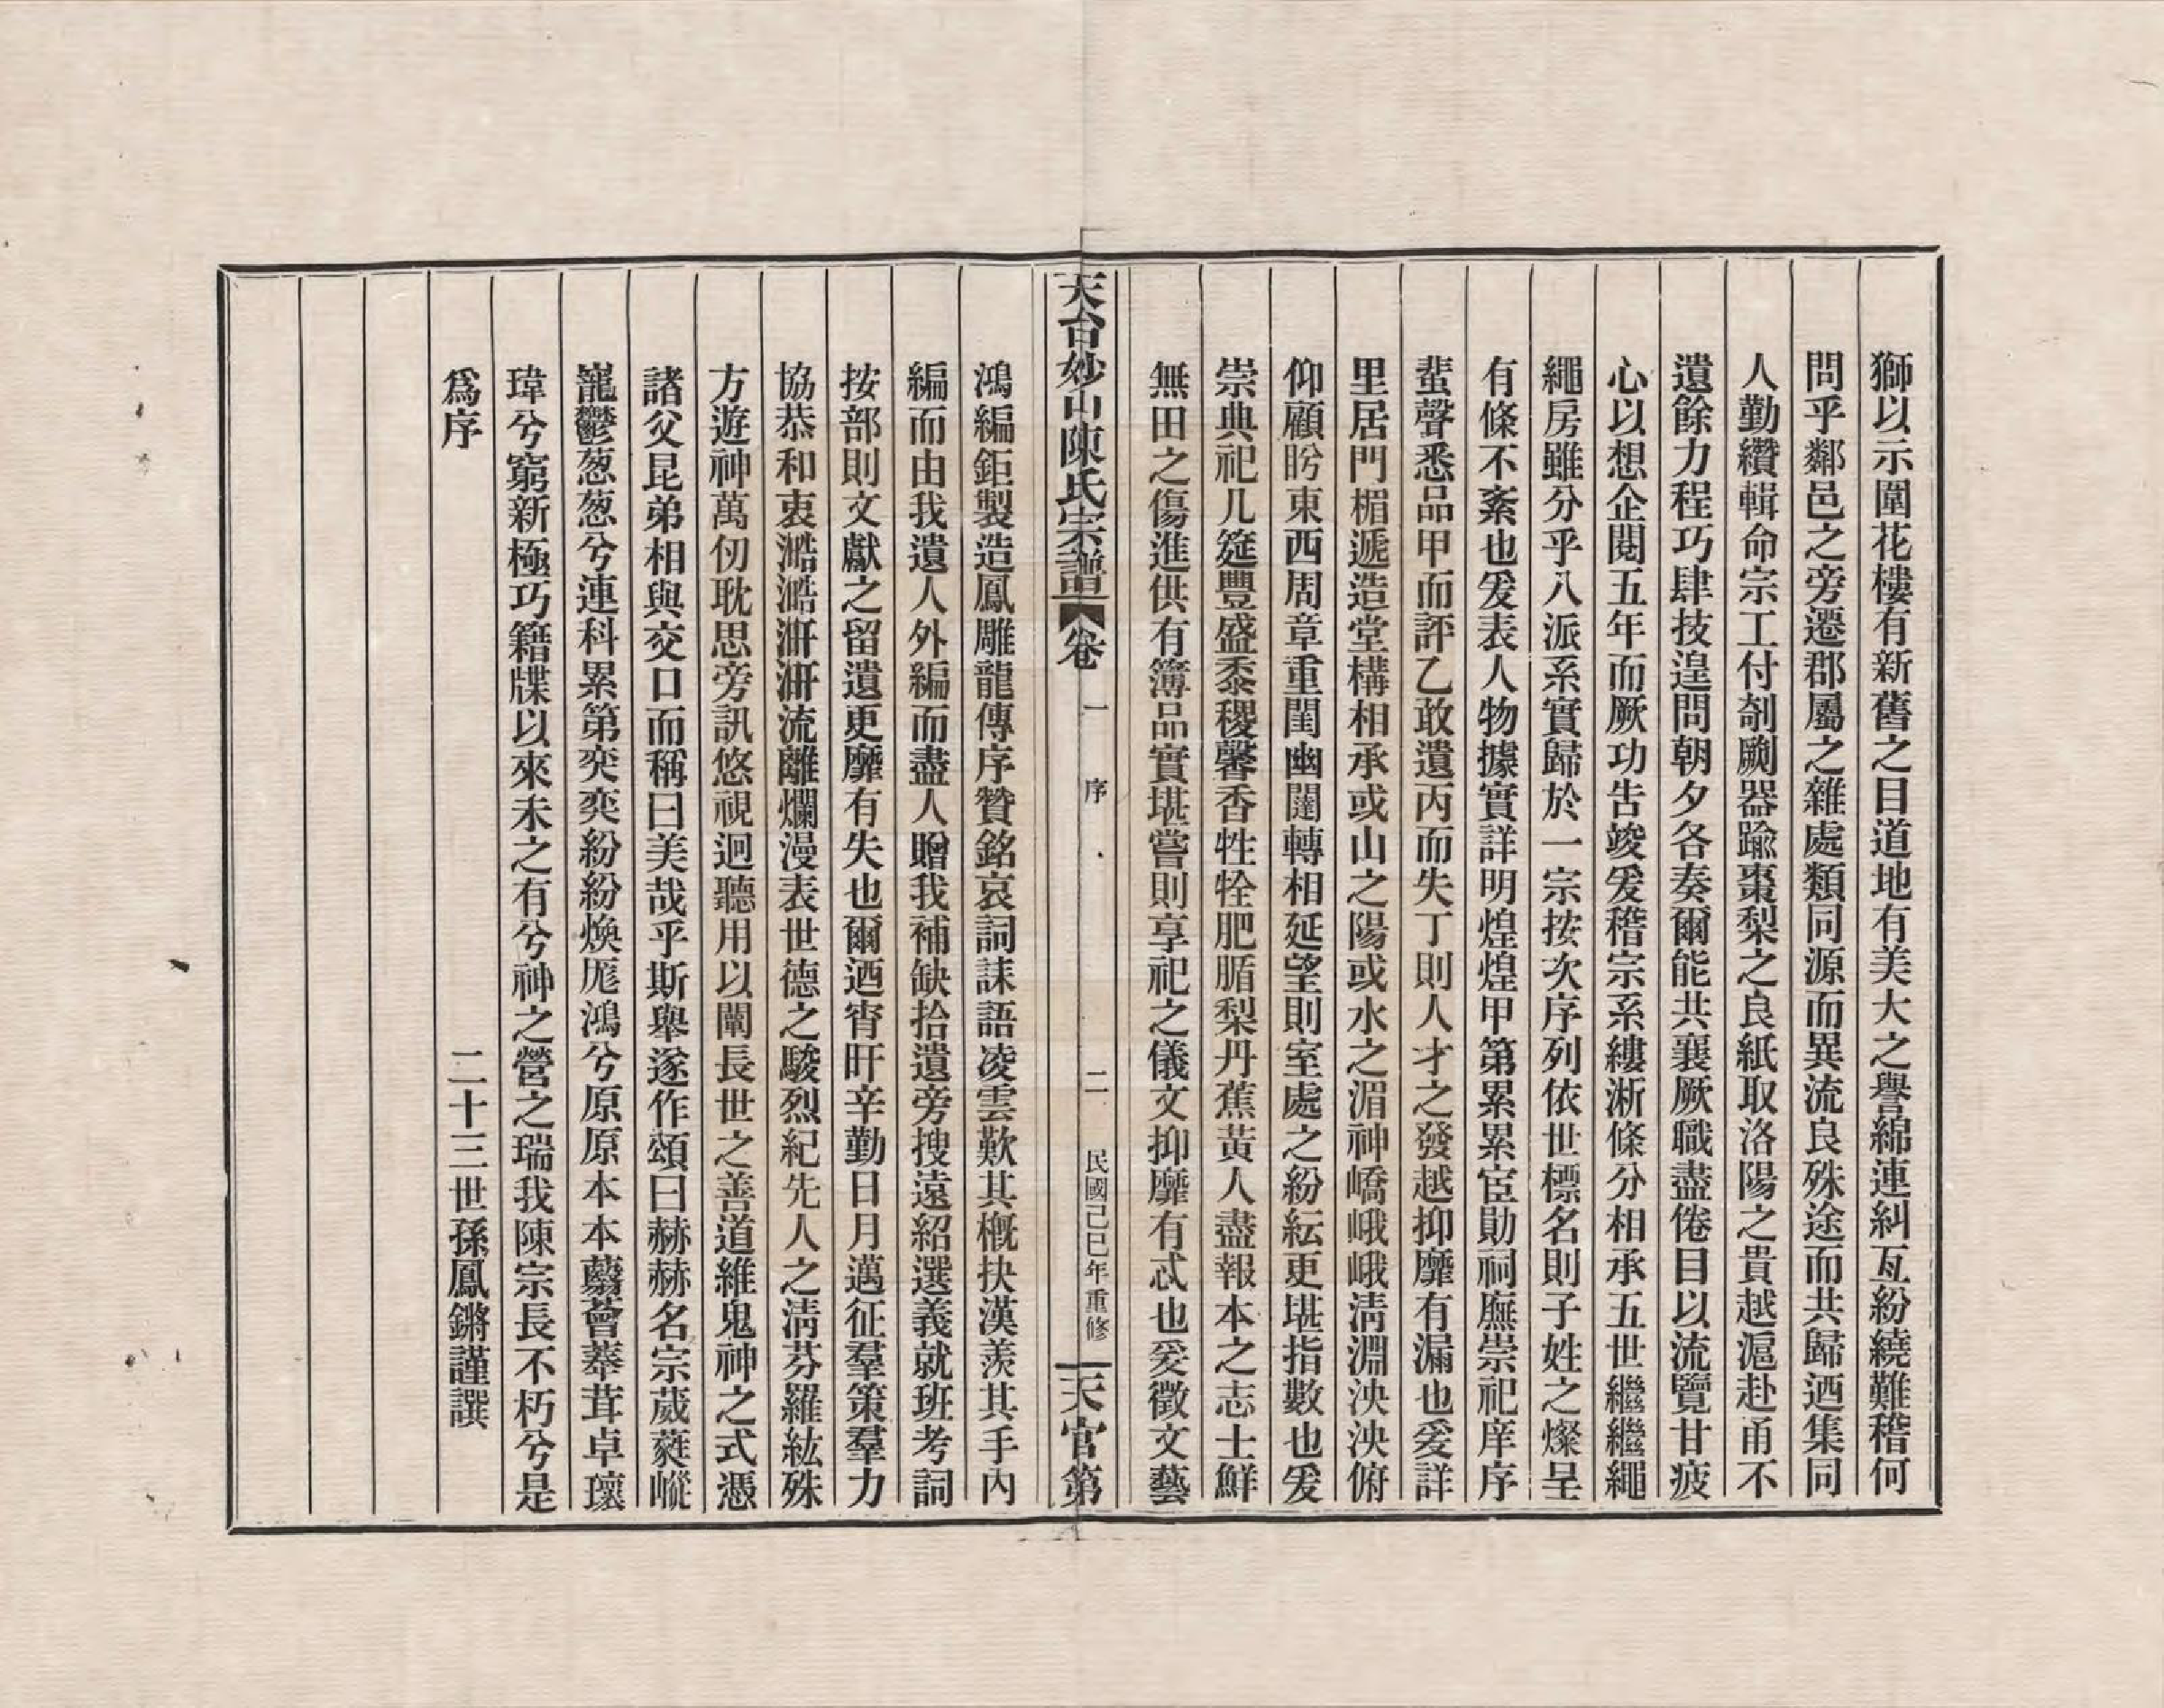 獅以示圍花樓有新舊之目道地有美大之譽綿連糾亙紛繞難稽何
問乎鄰邑之旁遷郡屬之雜處類同源而異流良殊途而共歸迺集同
人勤纘輯命宗工付剞劂器踰棗梨之良紙取洛陽之貴越滬赴甬不
遺餘力程巧肆技遑問朝夕各奏爾能共襄厥職盡倦目以流覽甘疲
心以想企閱五年而厥功告竣爰稽宗系縷淅條分相承五世繼繼繩
繩房雖分乎八派系實歸於一宗按次序列依世標名則子姓之燦呈
有條不紊也爰表人物據實詳明煌煌甲第累累宦勛祠廡崇祀庠序
蜚聲悉品甲而評乙敢遺丙而失丁則人才之發越抑靡有漏也爰詳
里居門楣遞造堂構相承或山之陽或水之湄神嶠峨峨淸淵泱泱俯
仰顧盻東西周章重閨幽闥轉相延望則室處之紛紜更堪指數也爰
崇典祀几筵豐盛黍稷馨香牲牷肥腯梨丹蕉黃人盡報本之志士鮮
無田之傷進供有簿品實堪嘗則享祀之儀文抑靡有忒也爰徵文藝
天台妙山陳氏宗譜 卷 一 序 二 民國己巳年重修 天官第
鴻編鉅製造鳳雕龍傳序贊銘哀詞誄語凌雲歎其概抉漢羨其手內
編而由我遺人外編而盡人贈我補缺拾遺旁搜遠紹選義就班考詞
按部則文獻之留遺更靡有失也爾迺宵旰辛勤日月邁征羣策羣力
協恭和衷澔澔汧汧流離爛漫表世德之駿烈紀先人之淸芬羅紘殊
方遊神萬仞耽思旁訊悠視迥聽用以闡長世之善道維鬼神之式憑
諸父昆弟相與交口而稱曰美哉乎斯舉遂作頌曰赫赫名宗葳蕤嵷
巃鬱葱葱兮連科累第奕奕紛紛煥厖鴻兮原原本本蘙薈蓁茸卓瓌
瑋兮窮新極巧籍牒以來未之有兮神之營之瑞我陳宗長不朽兮是
爲序
二十三世孫鳳鏘謹譔